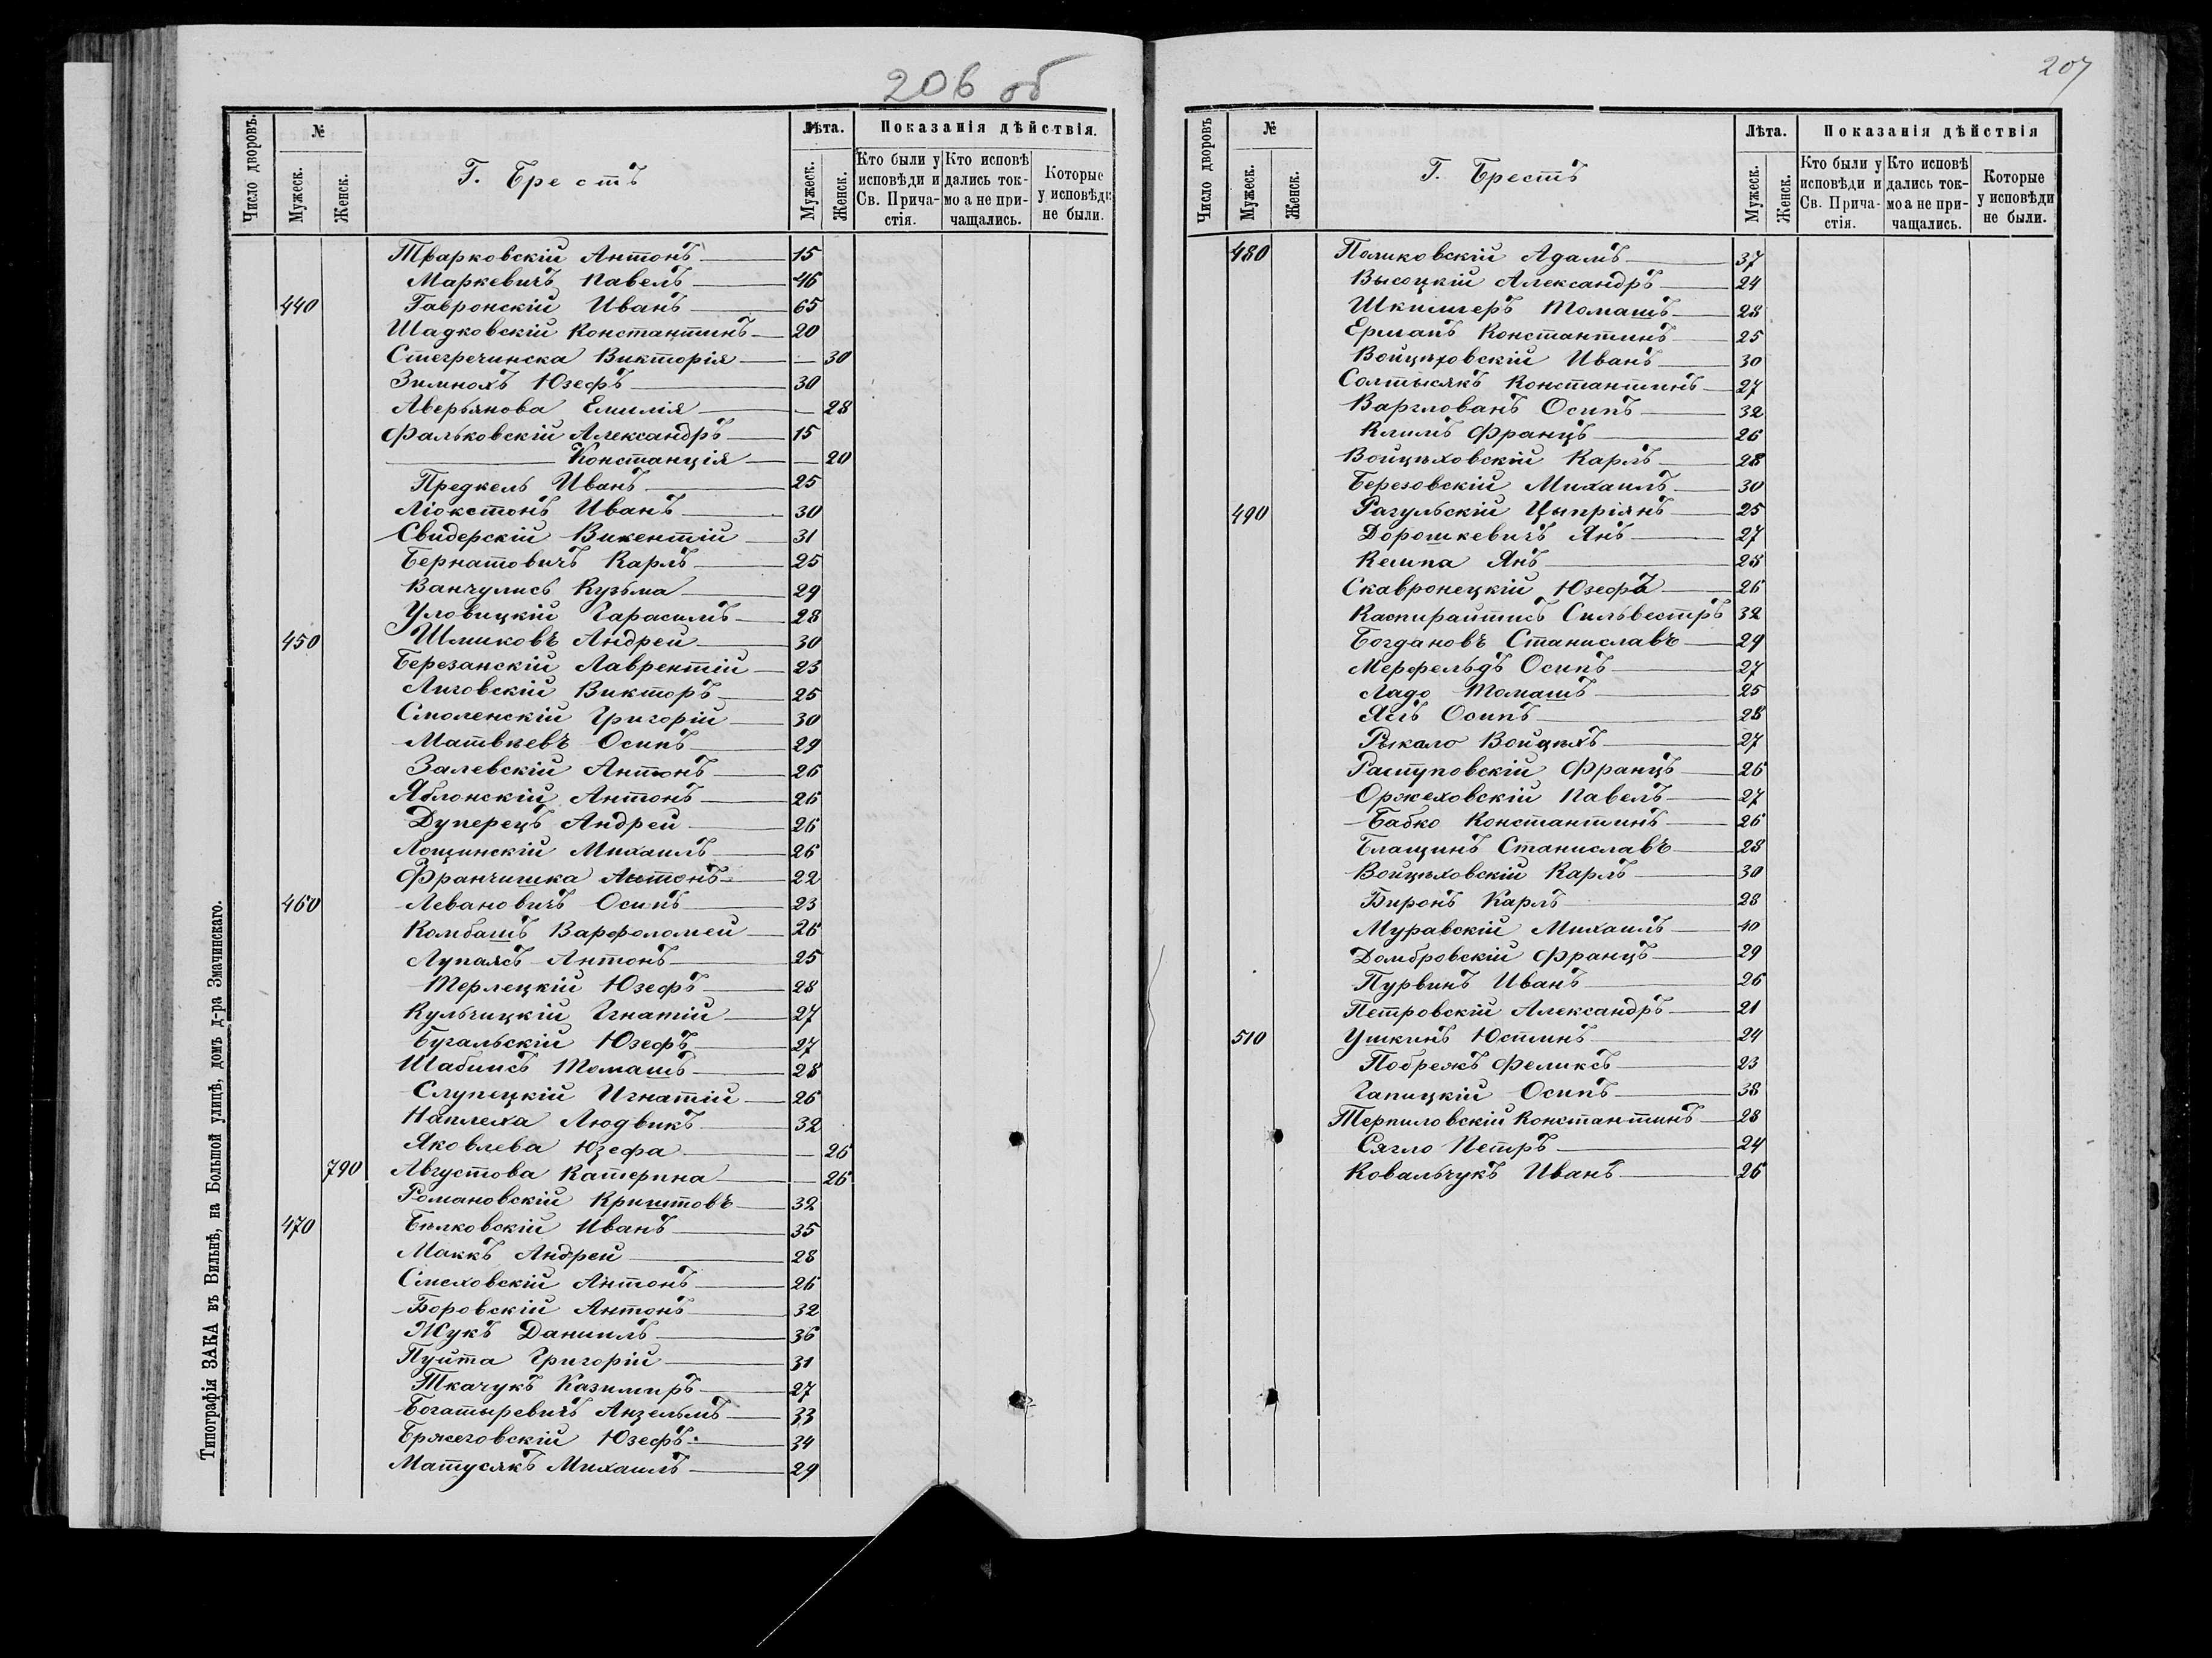 206 об
Число дворовъ.
№
Мужеск.
Женск.
Г. Брестъ
Лѣта.
Мужеск.
Женск.
Показанія дѣйствія.
Кто были у исповѣди и Св. Причастія.
Кто исповѣдались токмо а не причащались.
Которые у исповѣди не были.
Тварковскій Антонъ 15
Маркевичъ Павелъ 46
440 Гавронскій Иванъ 65
Шадковскій Константинъ 20
Стегречинска Викторія — 30
Зимнохъ Юзефъ 30
Аверьянова Емилія — 28
Фальковскій Александръ 15
Констанція — 20
Предкель Иванъ 25
Ліокстонъ Иванъ 30
Свидерскій Викентій 31
Бернатовичъ Карлъ 25
Ванчулисъ Кузьма 29
Уловицкій Гарасимъ 28
450 Шмиковъ Андрей 30
Березанскій Лаврентій 23
Лиговскій Викторъ 25
Смоленскій Григорій 30
Матвѣевъ Осипъ 29
Залевскій Антонъ 26
Яблонскій Антонъ 26
Дуперецъ Андрей 26
Лощинскій Михаилъ 26
Франчишка Антонъ 22
460 Левановичъ Осипъ 23
Комбашъ Варфоломей 26
Лупаясъ Антонъ 25
Терлецкій Юзефъ 28
Кульчицкій Игнатій 27
Бугальскій Юзефъ 27
Шабиисъ Томашъ 28
Слупецкій Игнатій 26
Наплеха Людвикъ 32
Яковлева Юзефа — 26
790 Августова Катерина — 26
Романовскій Криштовъ 32
470 Бѣлковскій Иванъ 35
Маккъ Андрей 28
Смеховскій Антонъ 26
Боровскій Антонъ 32
Жукъ Даниилъ 36
Пуйта Григорій 31
Ткачукъ Казимиръ 27
Богатыревичъ Анзельмъ 33
Бржеговскій Юзефъ 34
Матусякъ Михаилъ 29
Типографія ЗАКА въ Вильнѣ, на Большой улицѣ, домъ д-ра Змачинскаго.
207
Число дворовъ
№
Мужеск.
Женск.
Г. Брестъ
Лѣта.
Мужеск.
Женск.
Показанія дѣйствія
Кто были у исповѣди и Св. Причастія.
Кто исповѣдались токмо а не причащались.
Которые у исповѣди не были.
480 Поликовскій Адамъ 37
Высоцкій Александръ 24
Шкиллеръ Томашъ 28
Ерманъ Константинъ 25
Войцѣховскій Иванъ 30
Солтысякъ Константинъ 27
Варглованъ Осипъ 32
Климъ Францъ 26
Войцѣховскій Карлъ 28
Березовскій Михаилъ 30
490 Рагульскій Цыпріянъ 25
Дорошкевичъ Янъ 27
Кемпа Янъ 28
Скавронецкій Юзефъ 26
Каспирайтисъ Сильвестръ 32
Богдановъ Станиславъ 29
Мерфельдъ Осипъ 27
Ладо Томашъ 25
Осипъ 28
Рыкало Войцѣхъ 27
Распуповскій Францъ 26
Оржеховскій Павелъ 27
Бабко Константинъ 26
Блащинъ Станиславъ 28
Войцѣховскій Карлъ 30
Биронъ Карлъ 28
Муравскій Михаилъ 40
Домбровскій Францъ 29
Пурвинъ Иванъ 26
Петровскій Александръ 21
510 Ушкинъ Юстинъ 24
Побрежъ Феликсъ 23
Гапицкій Осипъ 38
Терпиловскій Константинъ 28
Сягло Петръ 24
Ковальчукъ Иванъ 26